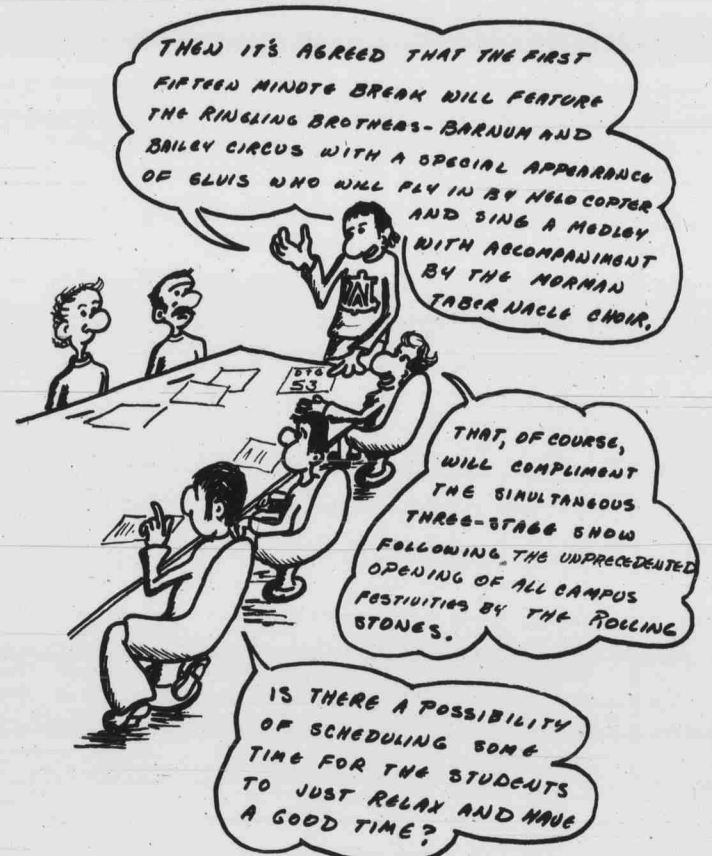 THEN IT'S AGREED THAT THE FIRST
FIFTEEN MINUTE BREAK WILL FEATURE
THE RINGLING BROTHERS-BARNUM AND
BAILEY CIRCUS WITH A SPECIAL APPEARANCE
OF ELVIS WHO WILL FLY IN BY HELOCOPTER
AND SING A MEDLEY
WITH ACCOMPANIMENT
BY THE MORMAN
TABERNACLE CHOIR.
53
THAT, OF COURSE,
WILL COMPLIMENT
THE SIMULTANEOUS
THREE-STAGE SHOW
FOLLOWING THE UNPRECEDENTED
OPENING OF ALL CAMPUS
FESTIVITIES BY THE ROLLING
STONES.
IS THERE A POSSIBILITY
OF SCHEDULING SOME
TIME FOR THE STUDENTS
TO JUST RELAX AND HAVE
A GOOD TIME?